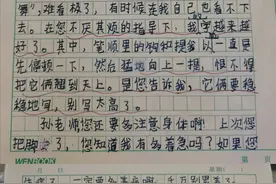 舞”，难看极了，有时候连我自己也看不下
去。在您不厌其烦的指导下，我学越来越
好了。其中，笔顺里的撇和捺我以一直是
先停顿一下，然后猛地向上一撂，恨不得
把它俩翘到天上。是您告诉我，它俩要稳
稳地写，别写太高了。
孙老师您还要多注意身体啊！上次您
把脚了，您知道我有多着急吗？如果您
WENBOOK